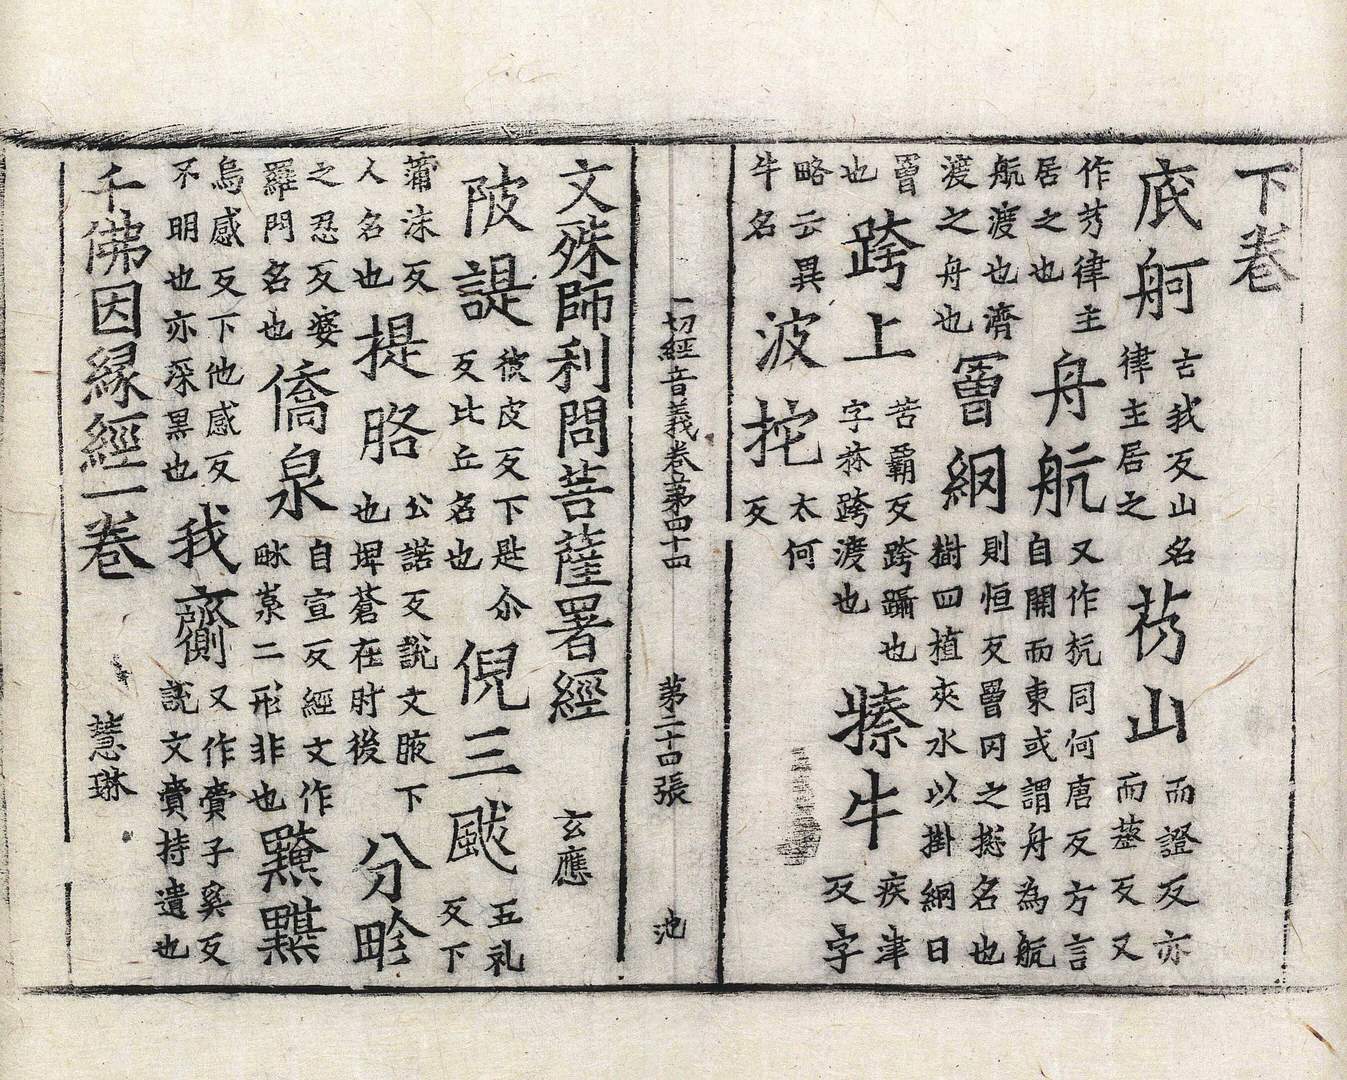 下卷
底舸古我反山名律主居之芿山而證反亦而蒸反又
作芳律主居之也舟航又作杭同何唐反方言自關而東或謂舟為航
航渡也濟渡之舟也罾網則恒反罾罔之惣名也樹四植夾水以掛網曰
罾也跨上苦霸反跨躡也字林跨渡也牛疾津反字
略云異牛名波挓太何反
一切經音義卷第四十四 第二十四張 池
文殊師利問菩薩署經 玄應
陂諟彼皮反下是尒反比丘名也倪三颰五礼反下
蒲沫反人名也提胳公諾反說文腋下也埤蒼在肘後分畛
之忍反婆羅門名也僑泉自宣反經文作二形非也黤黮
烏感反下他感反不明也亦深黑也我又作賷子奚反說文賷持遺也
千佛因緣經一卷 慧琳